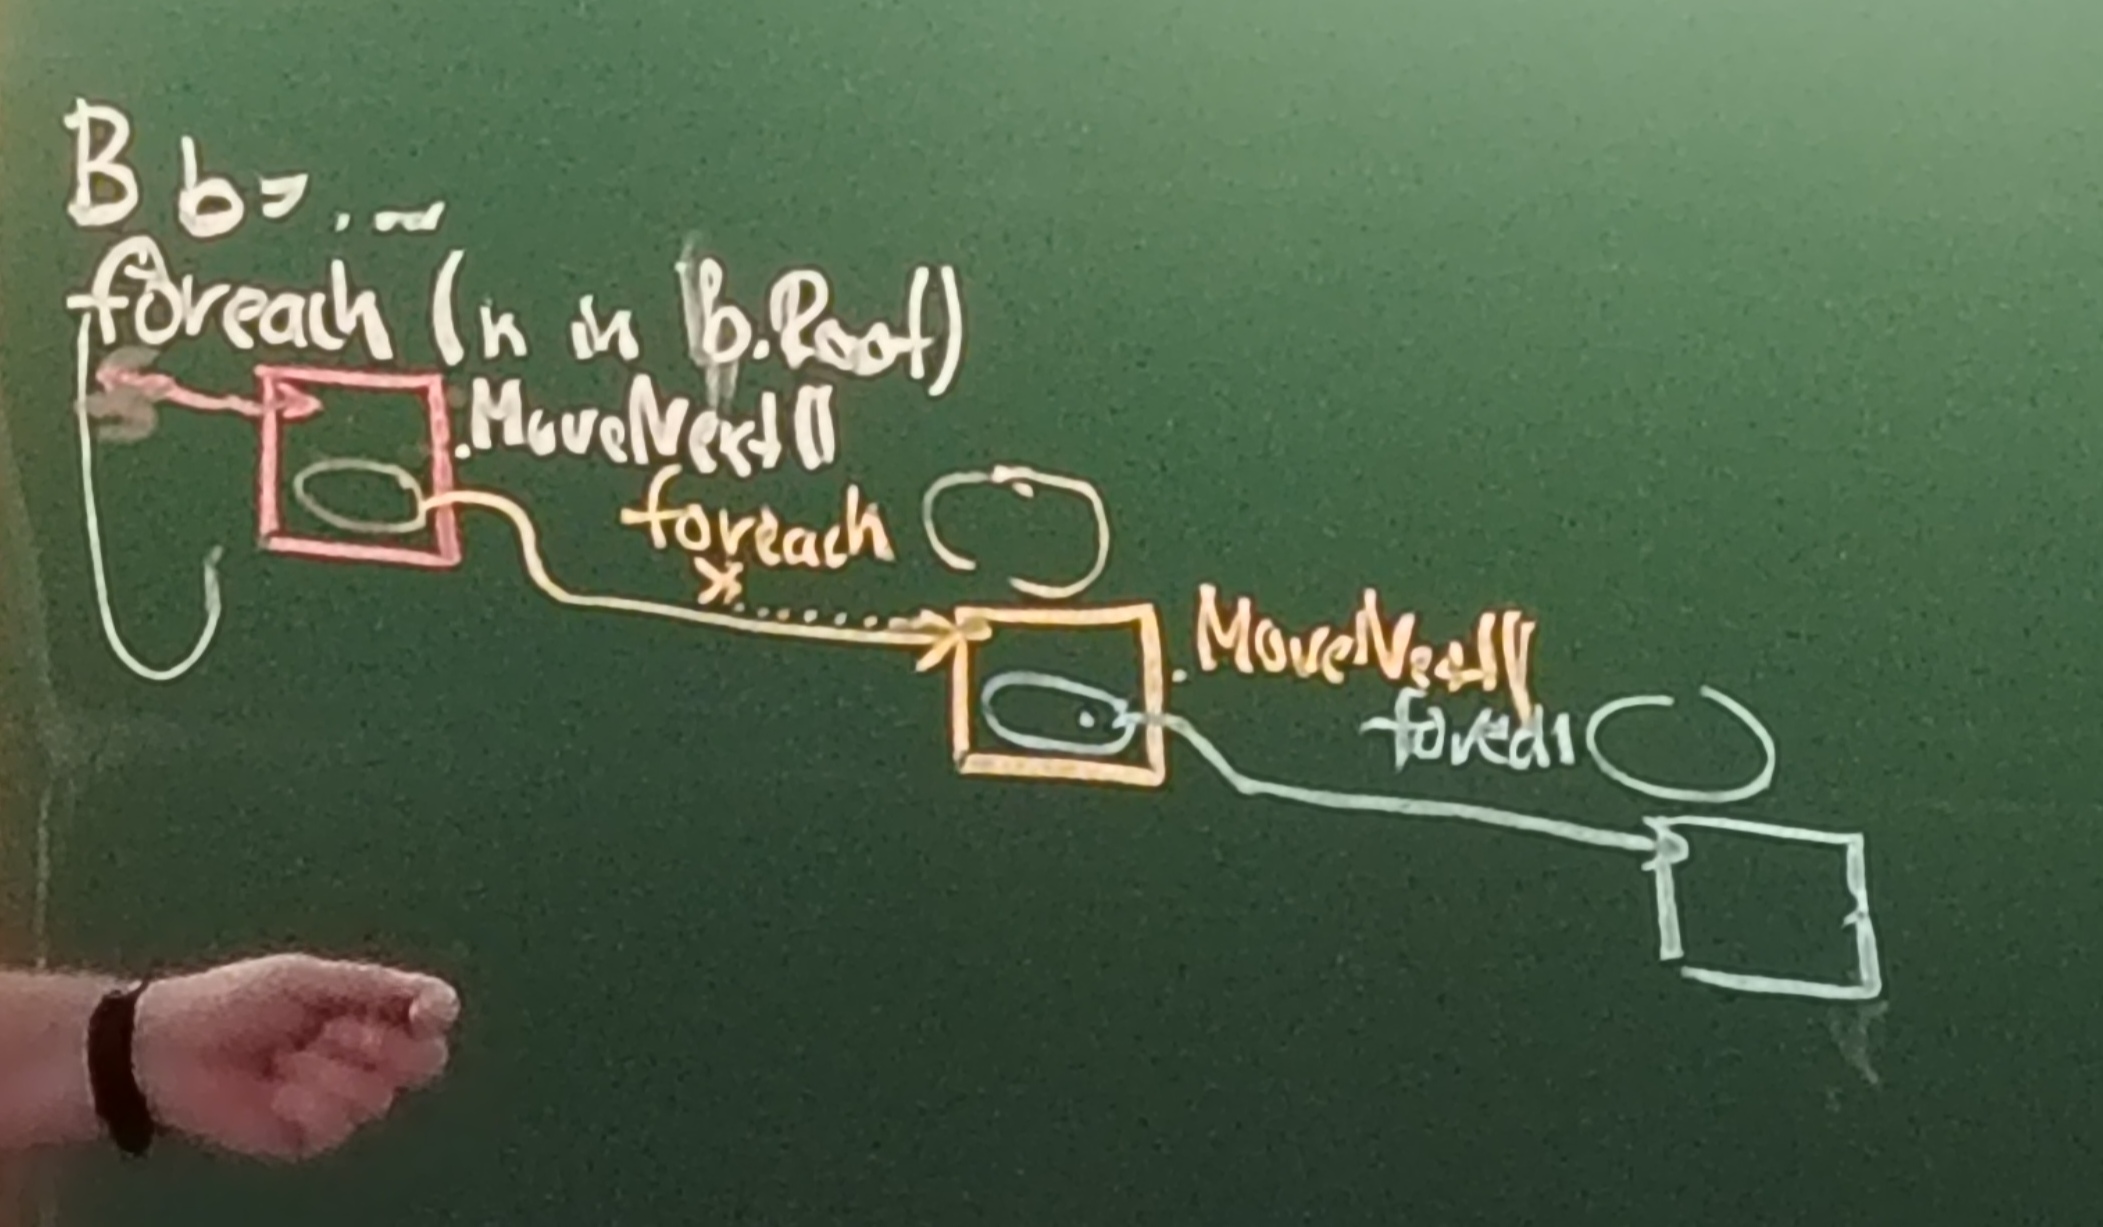 B b = ...
foreach (n in b.Root)
.MoveNext()
foreach
.MoveNext()
foreach